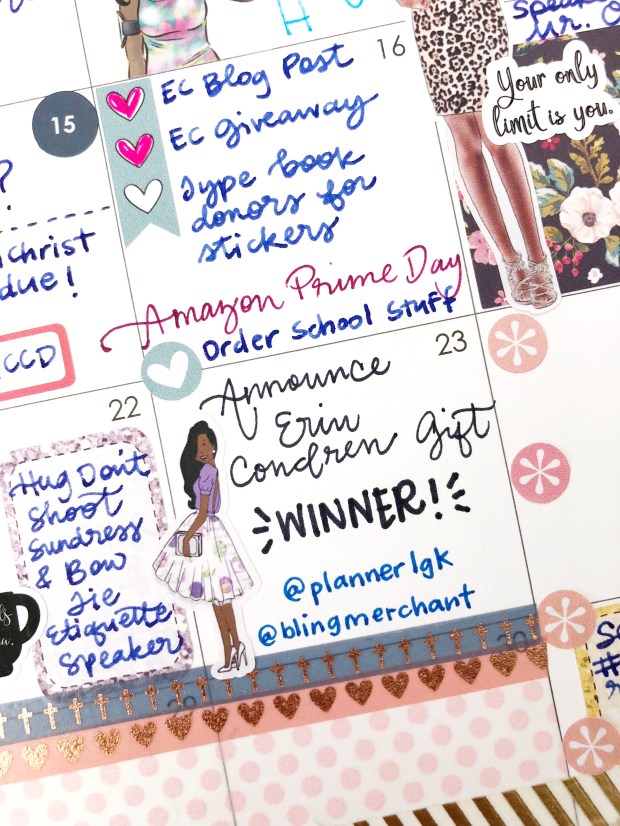 Mr.
16
Your only
limit is you.
EC Blog Post
EC Giveaway
Type book
donors for
stickers
15
?
christ
due!
CCD
Amazon Prime Day
Order School Stuff
22
Hug Don't
Shoot
Sundress
& Bow
Tie
Etiquette
Speaker
23
Announce
Erin
Condren Gift
WINNER!
@plannerlgk
@blingmerchant
29
30
#